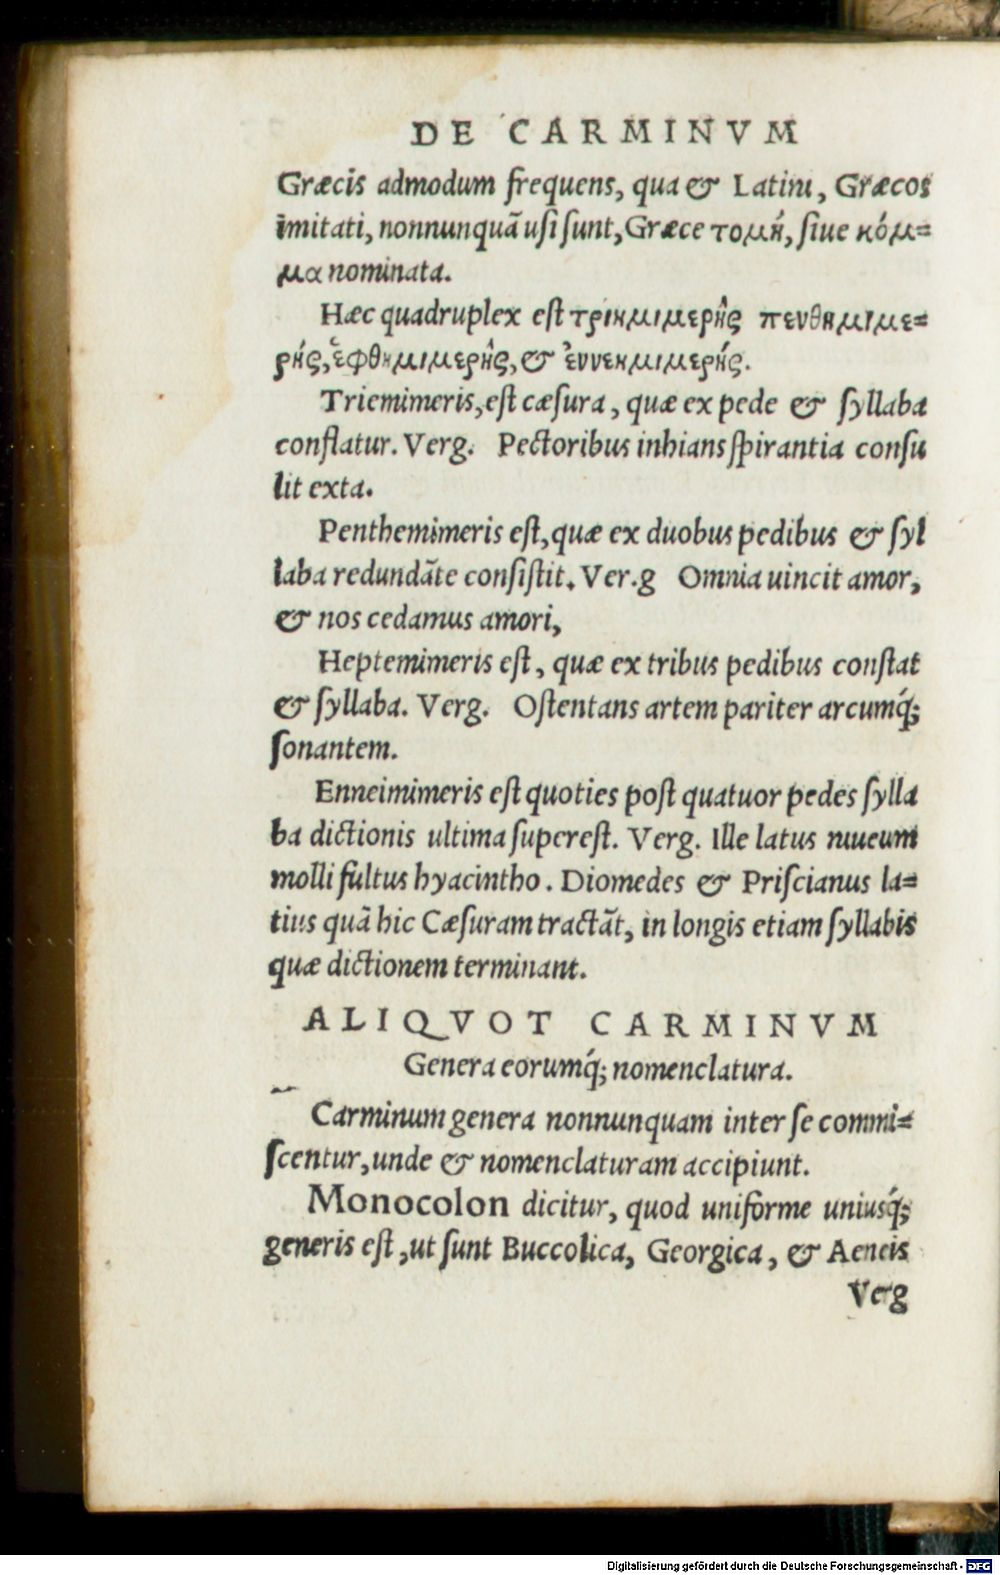 DE CARMINVM
Græcis admodum frequens, qua & Latini, Græcos
imitati, nonnunquã uſi ſunt, Græce τομὴ, ſiue κόμ=
μα nominata.
Hæc quadruplex eſt τριημιμερὴς πενθημιμε=
ρὴς, ἑφθημιμερὴς, & ἐννεημιμερὴς.
Triemimeris, eſt cæſura, quæ ex pede & ſyllaba
conflatur. Verg. Pectoribus inhians ſpirantia conſu
lit exta.
Penthemimeris eſt, quæ ex duobus pedibus & ſyl
laba redundãte conſiſtit. Ver.g Omnia uincit amor,
& nos cedamus amori,
Heptemimeris eſt, quæ ex tribus pedibus conſtat
& ſyllaba. Verg. Oſtentans artem pariter arcumq́;
ſonantem.
Enneimimeris eſt quoties poſt quatuor pedes ſylla
ba dictionis ultima ſupereſt. Verg. Ille latus niueum
molli fultus hyacintho. Diomedes & Priſcianus la=
tius quã hic Cæſuram tractãt, in longis etiam ſyllabis
quæ dictionem terminant.
ALIQVOT CARMINVM
Genera eorumq́; nomenclatura.
Carminum genera nonnunquam inter ſe commi=
ſcentur, unde & nomenclaturam accipiunt.
Monocolon dicitur, quod uniforme uniusq́;
generis eſt, ut ſunt Buccolica, Georgica, & Aeneis
Verg
Digitalisierung gefördert durch die Deutsche Forschungsgemeinschaft - DFG